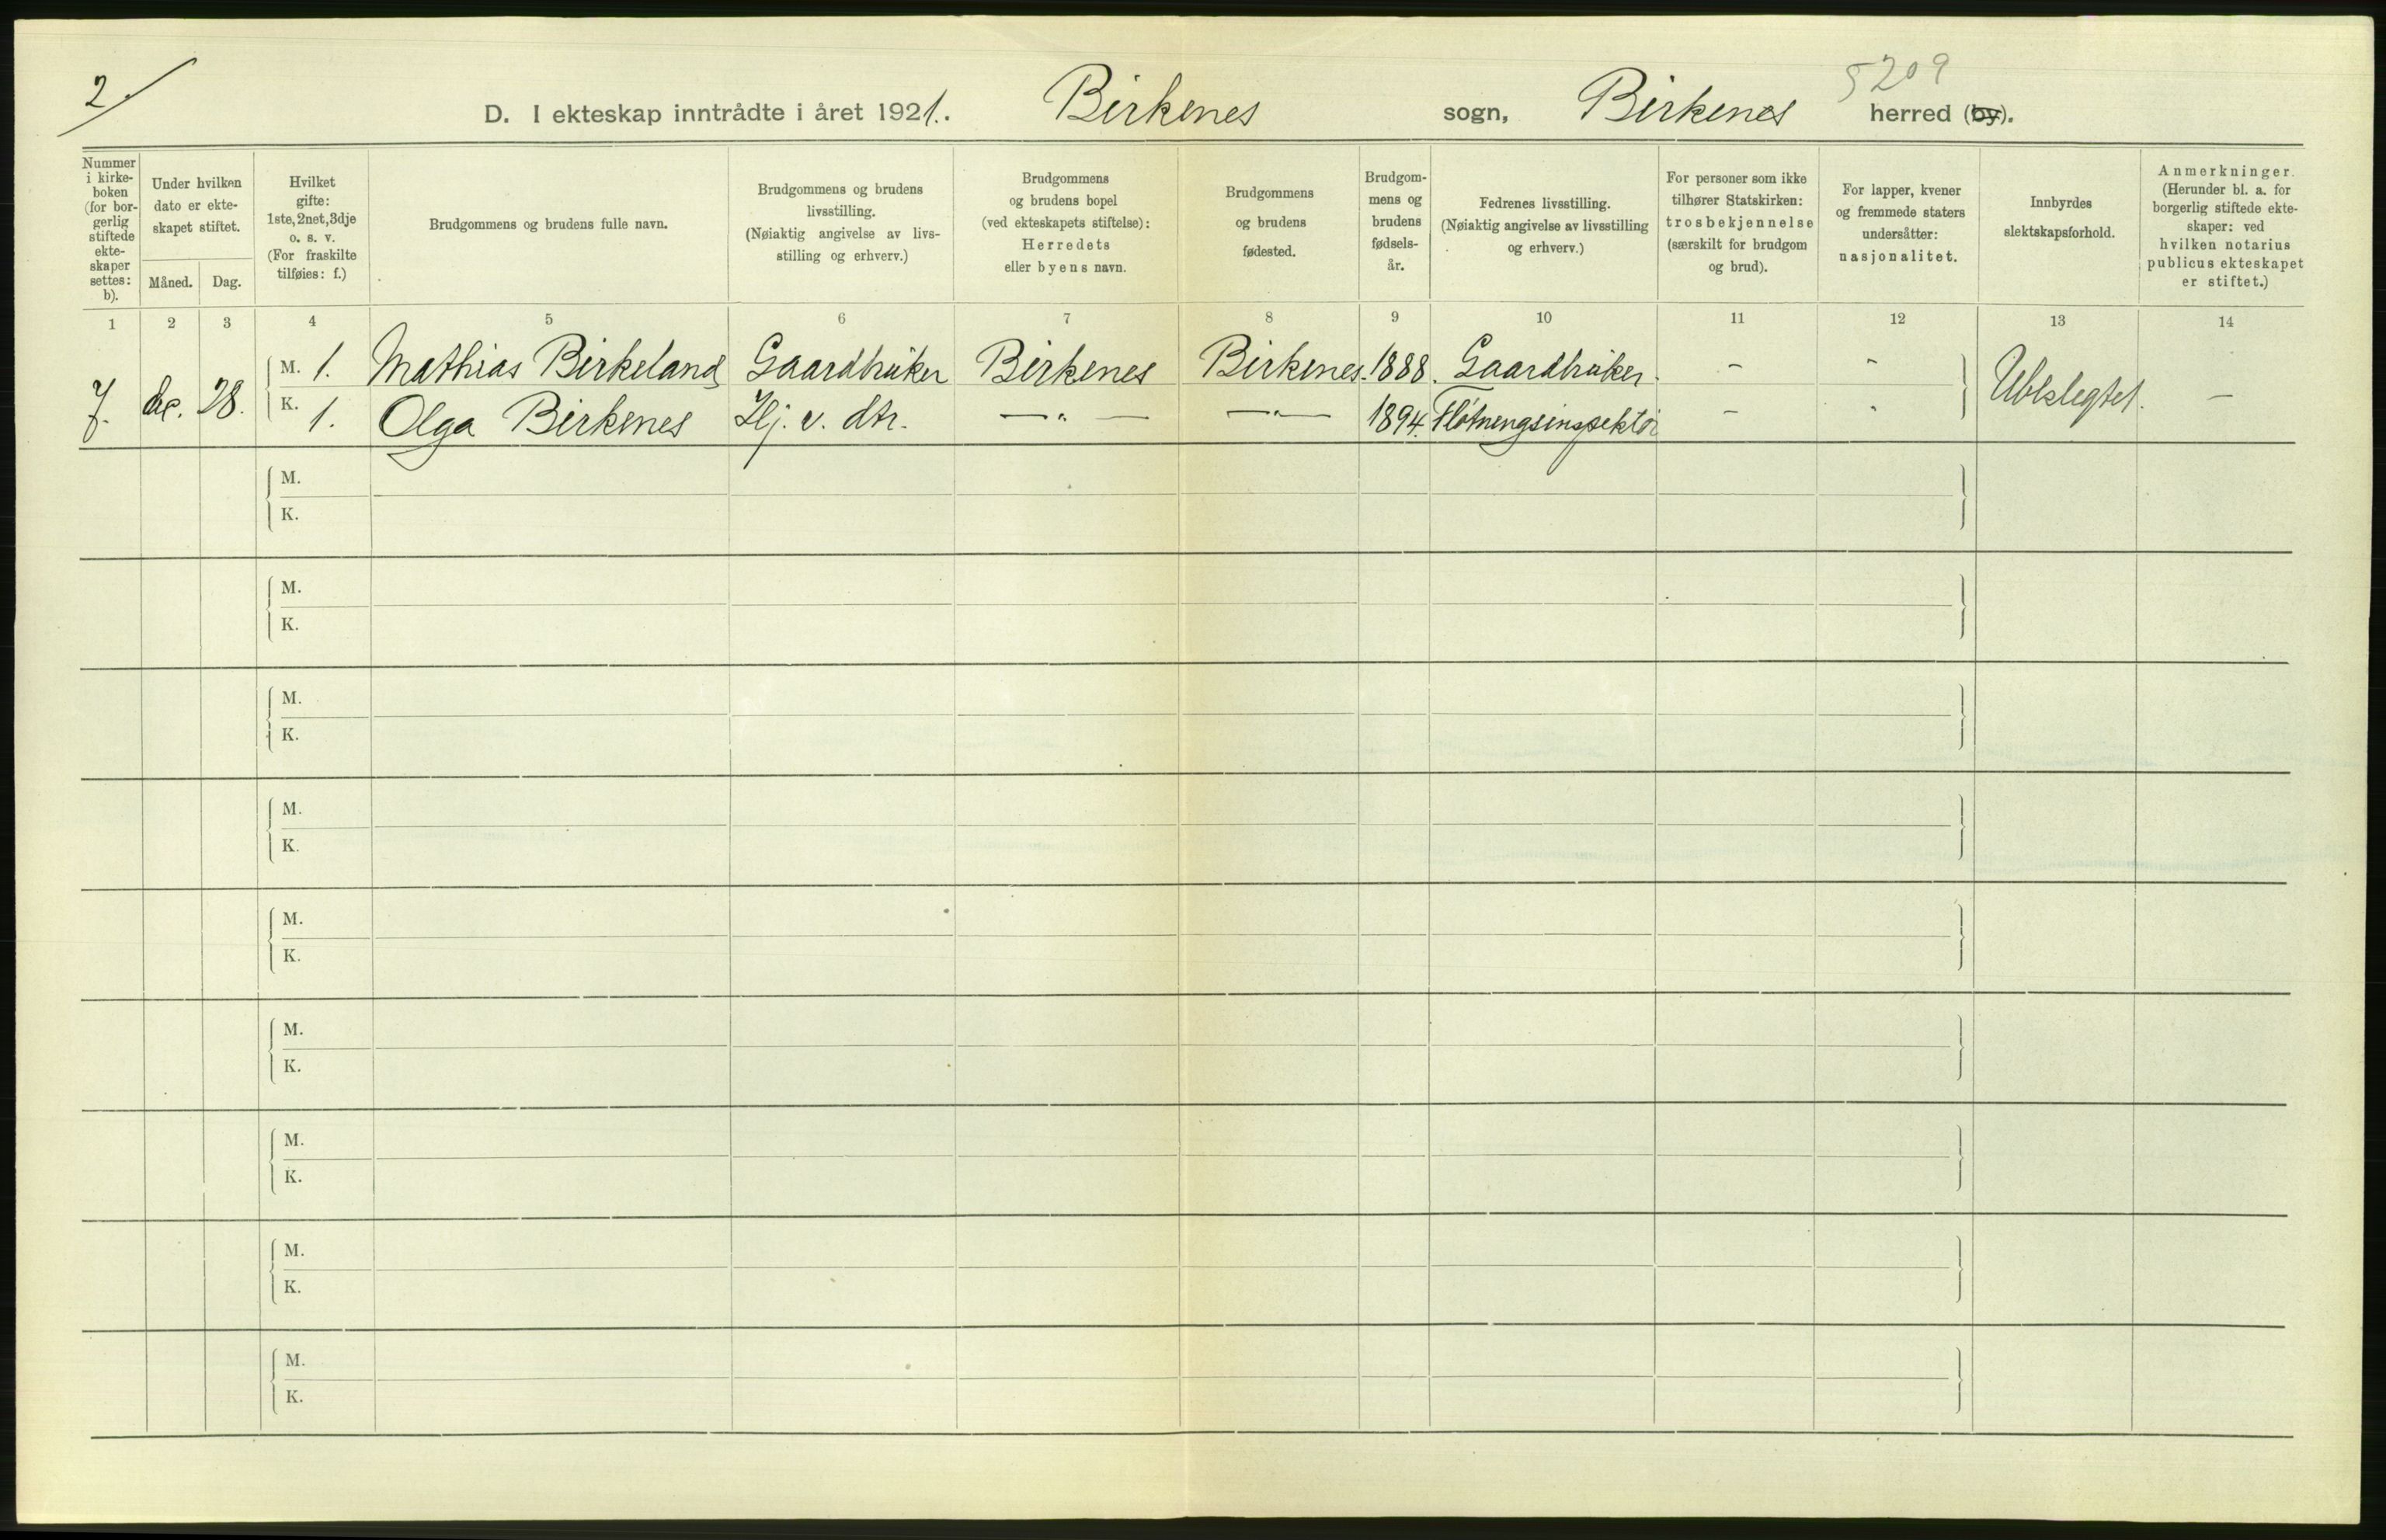 2./
5209
D. I ekteskap inntrådte i året 1921. Birkenes sogn, Birkenes herred (by).
Nummer i kirke- boken (for bor- gerlig stiftede ekte- skaper settes: b).
Under hvilken dato er ekte- skapet stiftet.
Måned. Dag.
Hvilket gifte: 1ste, 2net, 3dje o. s. v. (For fraskilte tilføies: f.)
Brudgommens og brudens fulle navn.
Brudgommens og brudens livsstilling. (Nøiaktig angivelse av livs- stilling og erhverv.)
Brudgommens og brudens bopel (ved ekteskapets stiftelse): Herredets eller byens navn.
Brudgommens og brudens fødested.
Brudgom- mens og brudens fødsels- år.
Fedrenes livsstilling. (Nøiaktig angivelse av livsstilling og erhverv.)
For personer som ikke tilhører Statskirken: trosbekjennelse (særskilt for brudgom og brud).
For lapper, kvener og fremmede staters undersåtter: nasjonalitet.
Innbyrdes slektskapsforhold.
Anmerkninger. (Herunder bl. a. for borgerlig stiftede ekte- skaper: ved hvilken notarius publicus ekteskapet er stiftet.)
1 2 3 4 5 6 7 8 9 10 11 12 13 14
7. de. 28. M. 1. Mathias Birkeland Gaardbruker Birkenes Birkenes. 1888. Gaardbruker. - - Ubeslegtet. -
K. 1. Olga Birkenes Hj. v. dtr. —"— —"— 1894. Fløtningsinspektør - "
M.
K.
M.
K.
M.
K.
M.
K.
M.
K.
M.
K.
M.
K.
M.
K.
M.
K.